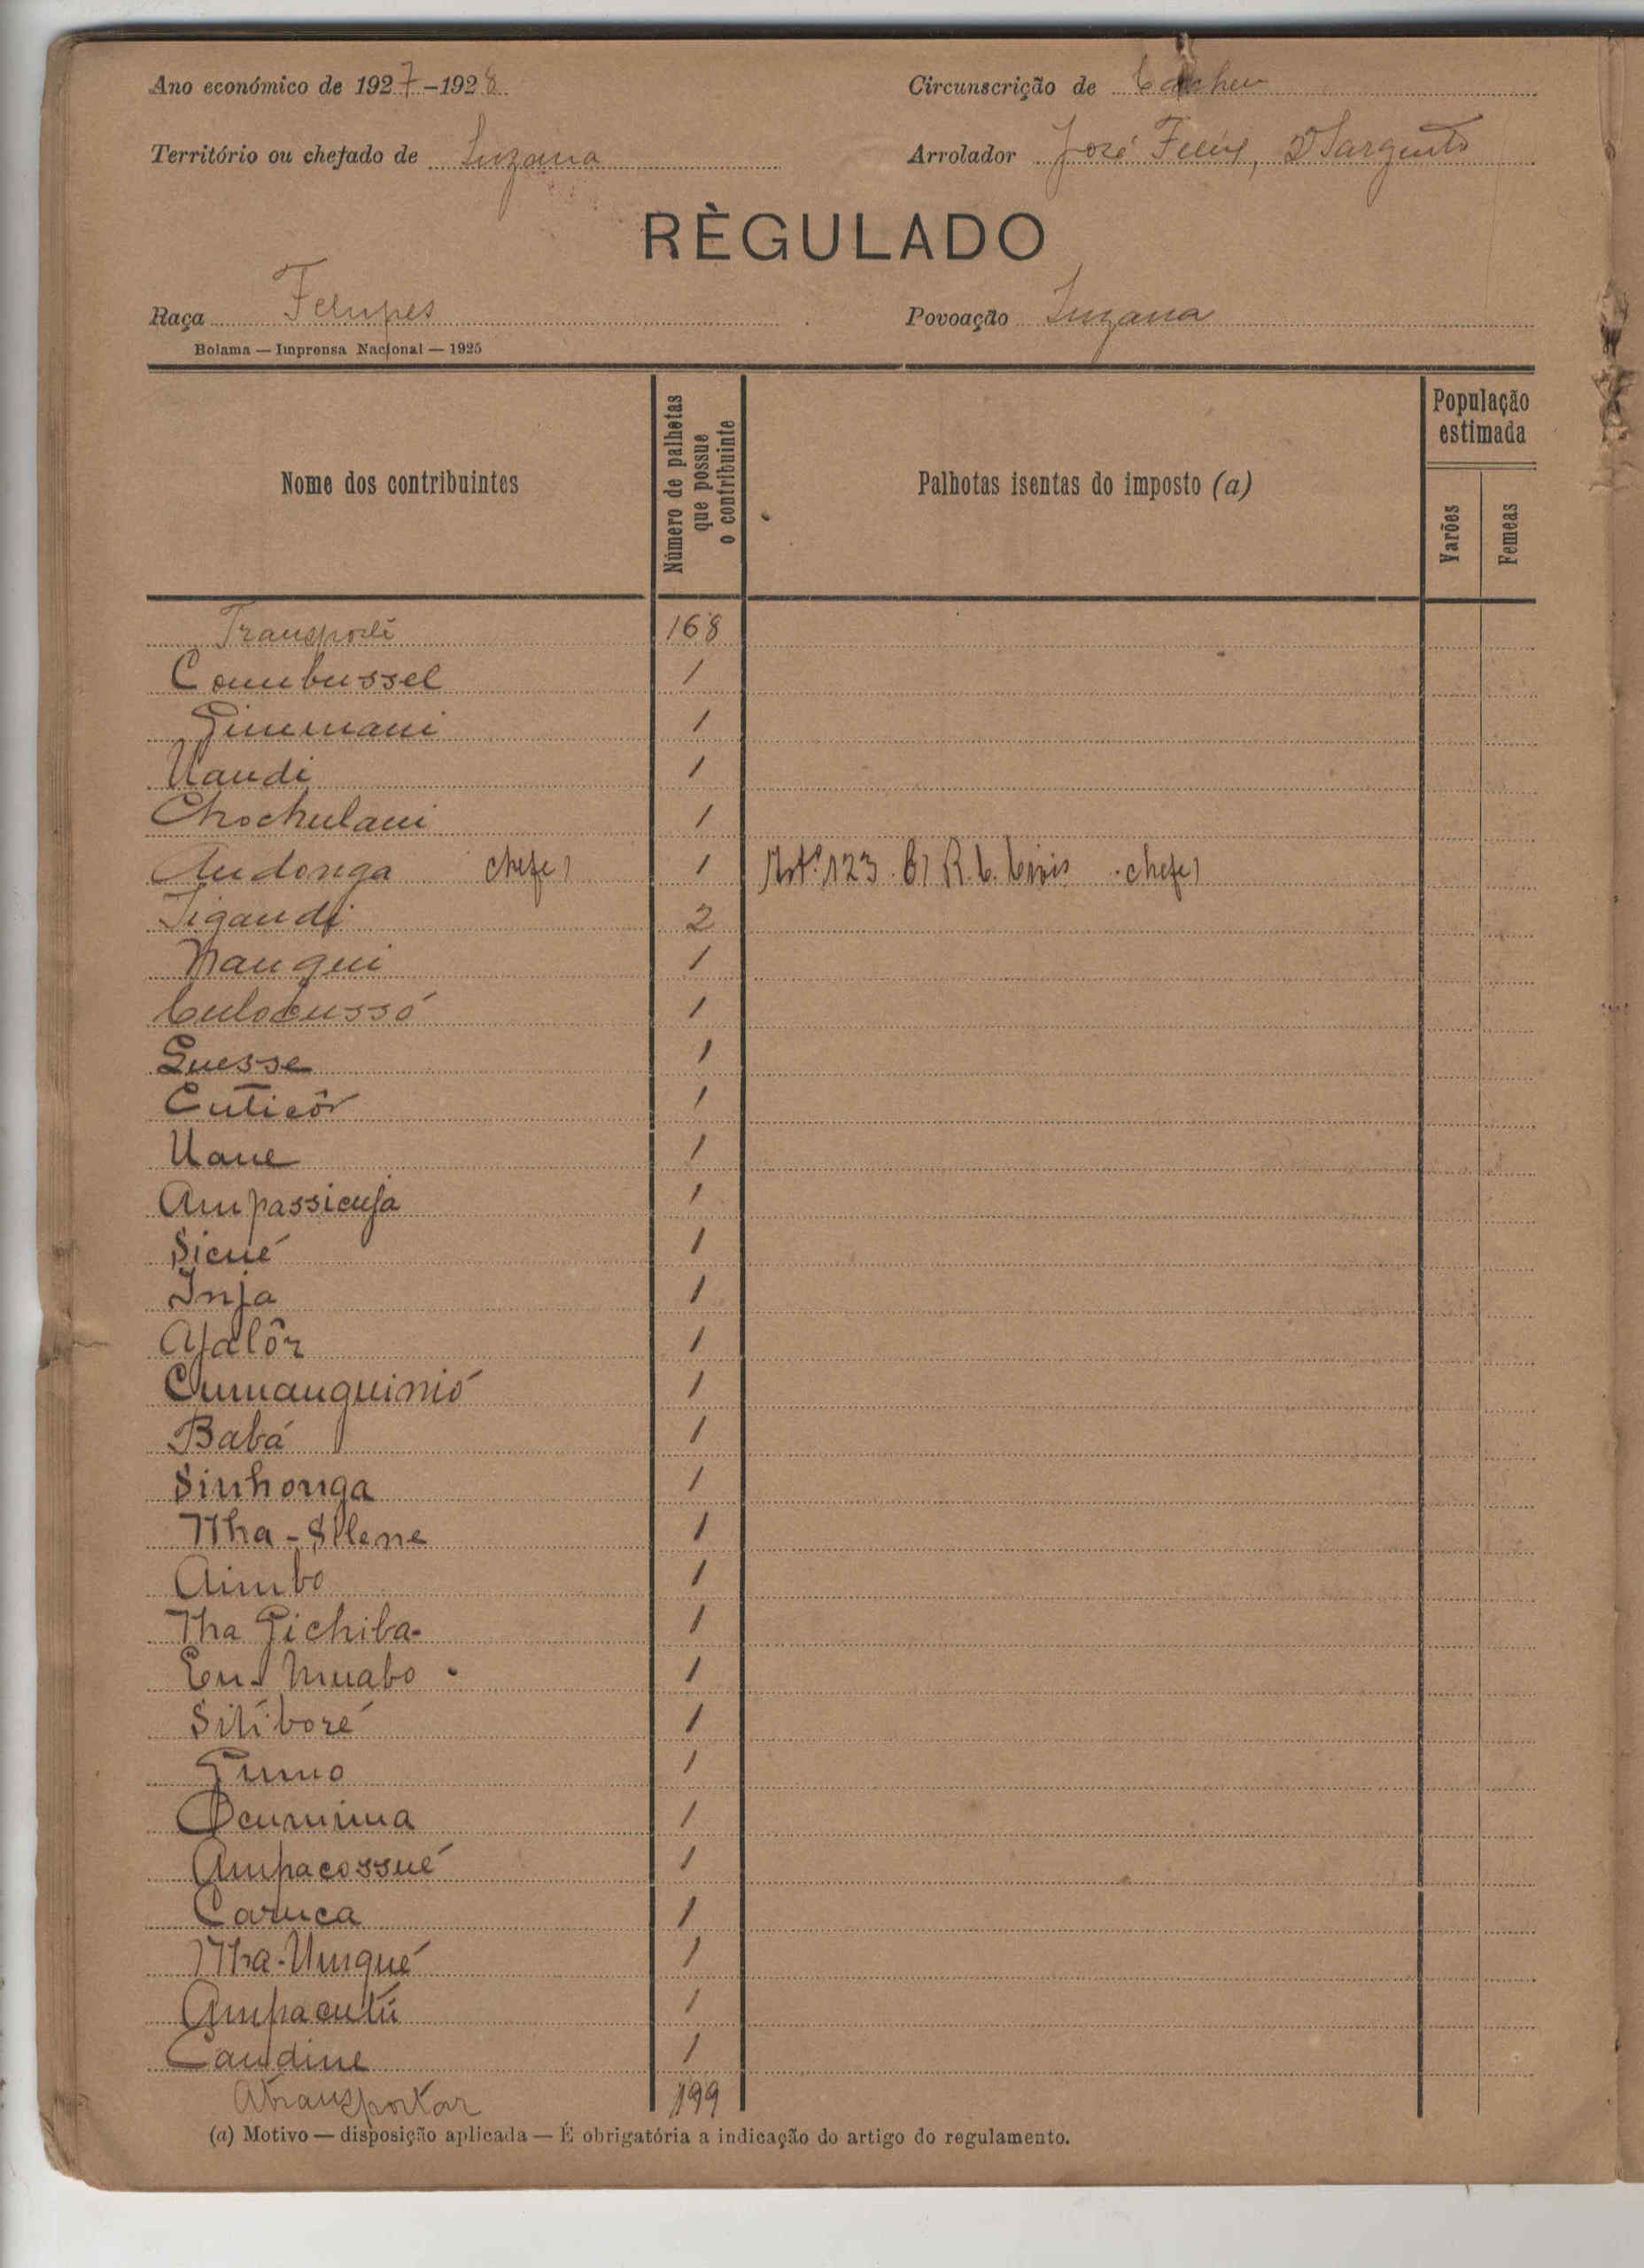 Ano económico de 1927-1928 Circunscrição de Cacheu
Território ou chefado de Suzana Arrolador José Felix, 2º Sargento
RÈGULADO
Raça Felupes Povoação Suzana
Bolama — Imprensa Nacional — 1925
Nome dos contribuintes
Número de palhotas que possue o contribuinte
Palhotas isentas do imposto (a)
População estimada
Varões
Femeas
Transporte 168
Combussel 1
Gimmani 1
Uandi 1
Chochulani 1
Andonga chefe) 1 Artº 123 R. C. Civis chefe)
Jigandi 2
Nanqui 1
Culocussó 1
Guesse 1
Euticôr 1
Uane 1
Ampassicuja 1
Sicué 1
Inja 1
Ajalôr 1
Cumanquinió 1
Babá 1
Sinhonga 1
Nha-Sllene 1
Aimbo 1
Nha Gichiba 1
1
Sitiboré 1
Gumo 1
Ocumima 1
Ampacossué 1
Caruca 1
Nha-Umqué 1
Ampacutú 1
Candine 1
A transportar 199
(a) Motivo — disposição aplicada — É obrigatória a indicação do artigo do regulamento.